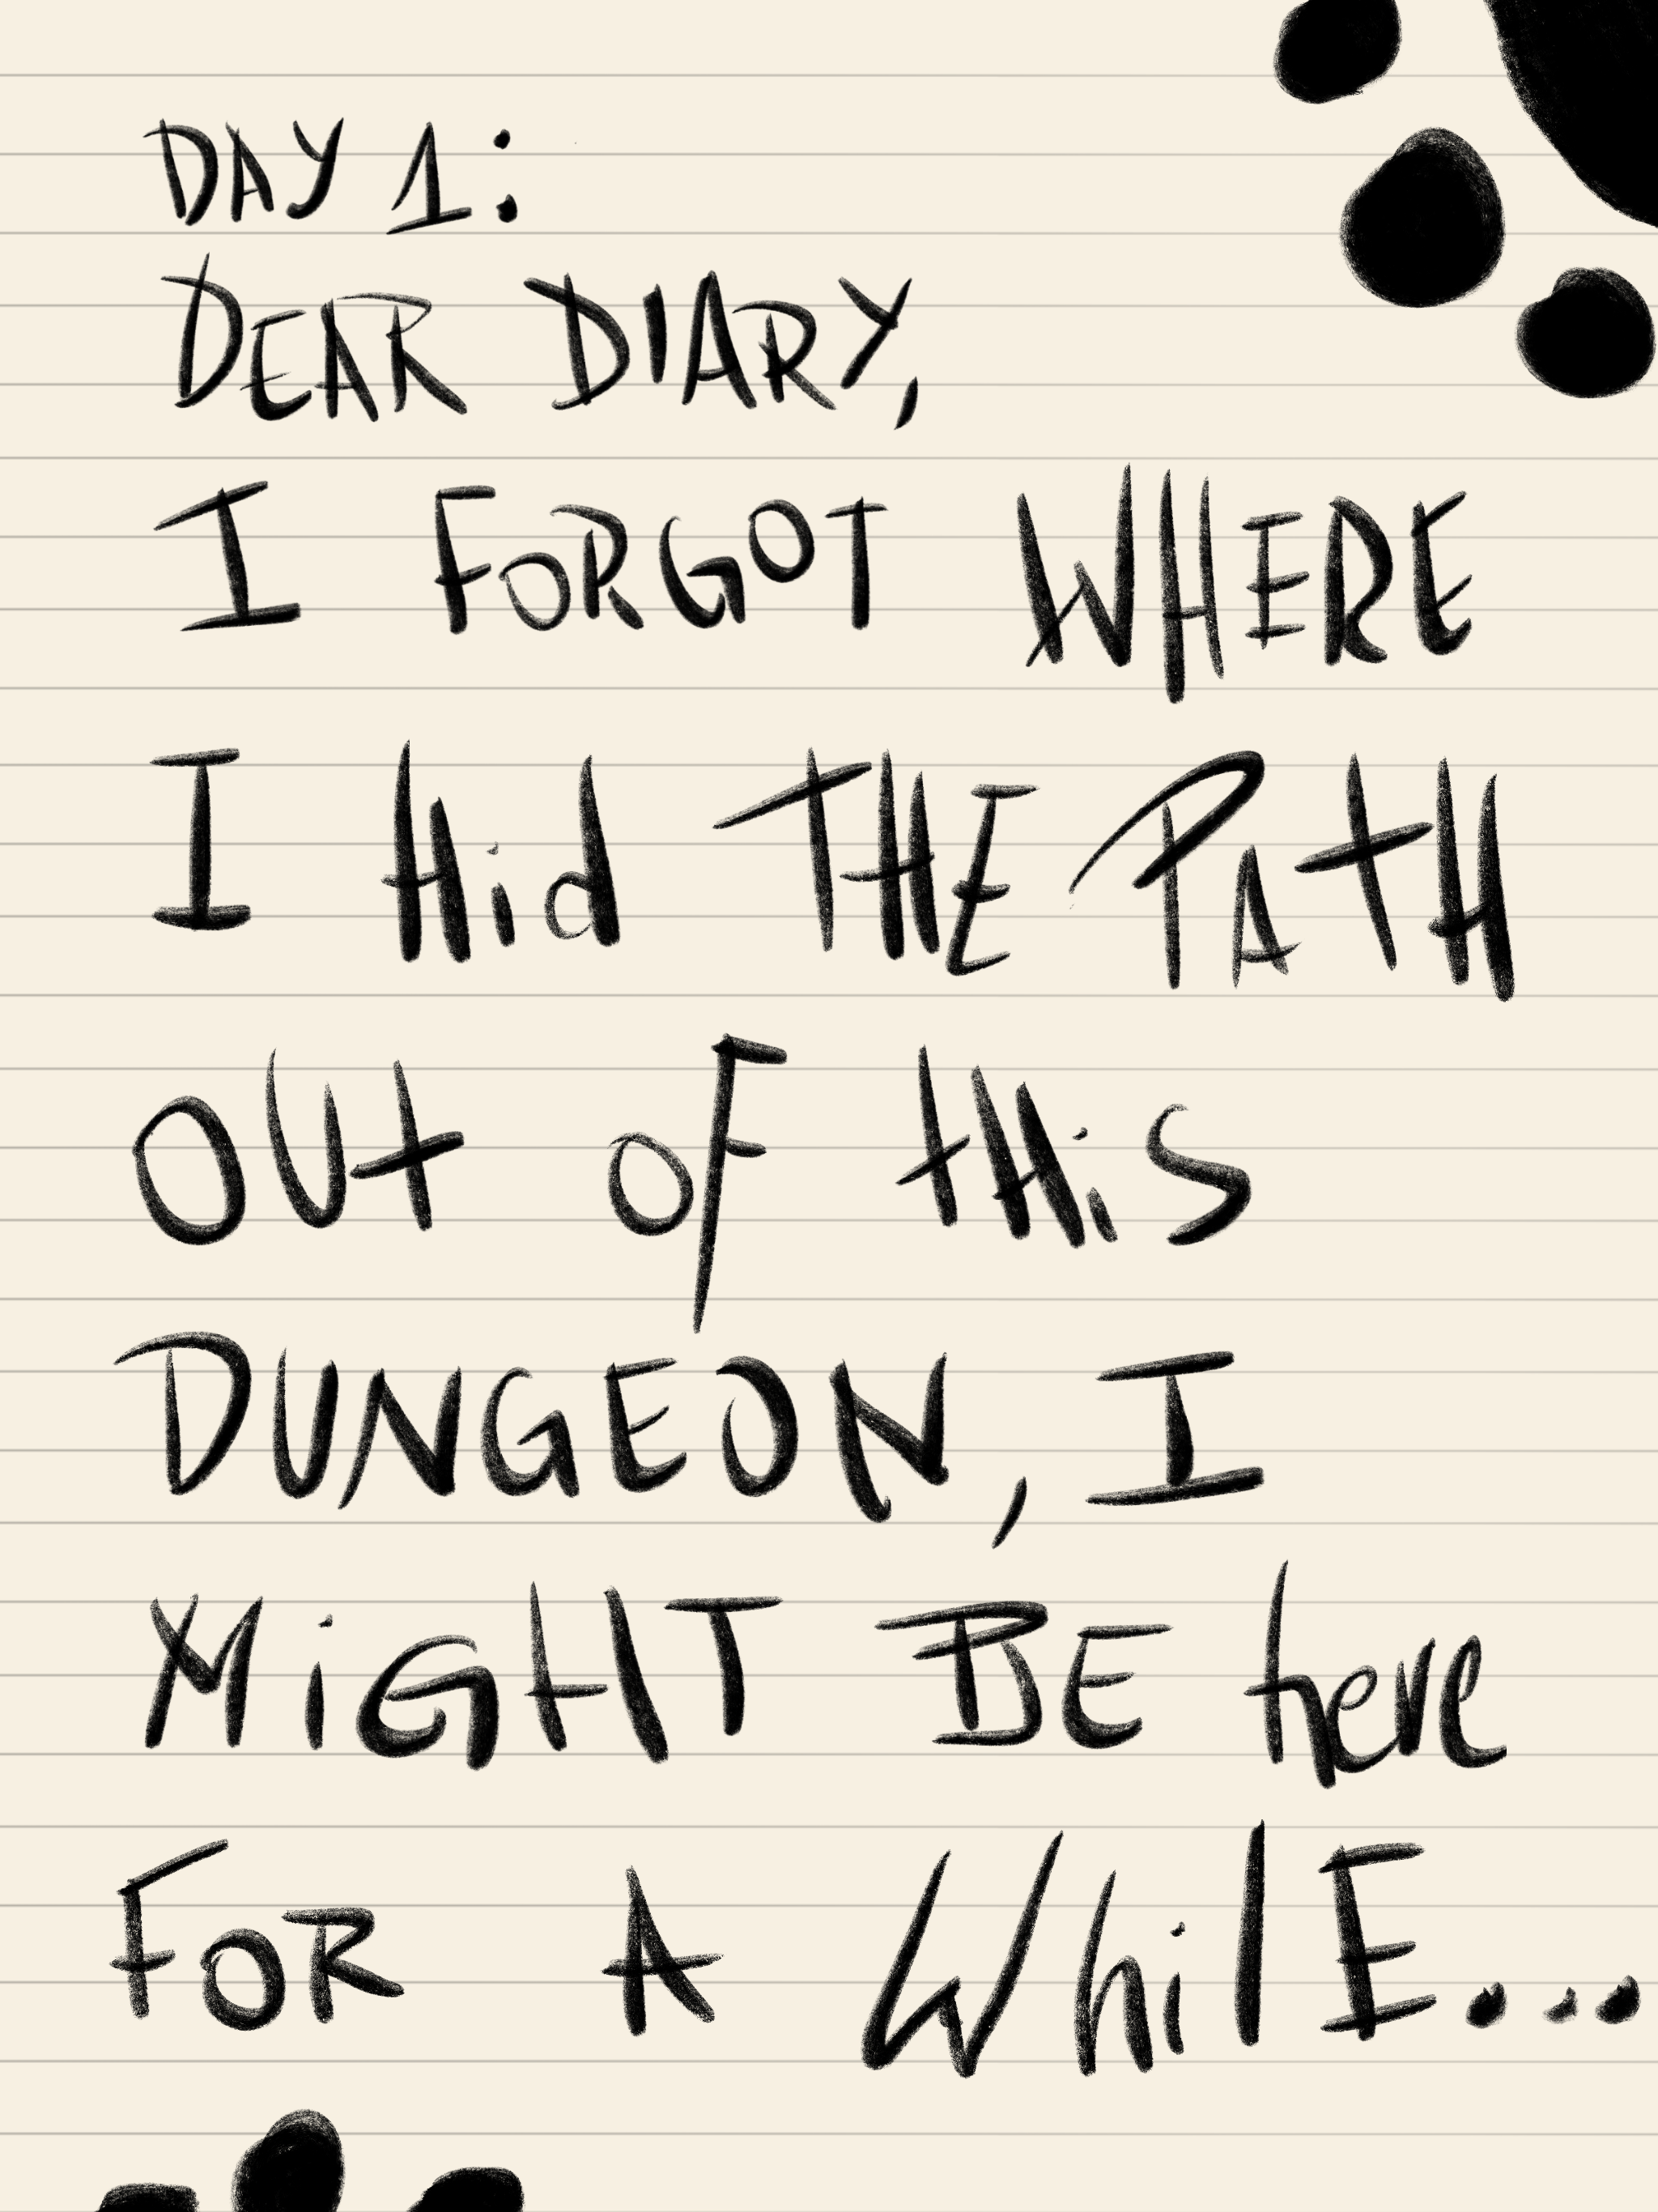 DAY 1:
DEAR DIARY,
I FORGOT WHERE
I Hid THE PAtH
OUt oF tHis
DUNGEON, I
MiGHT BE here
FOR A WhilE...